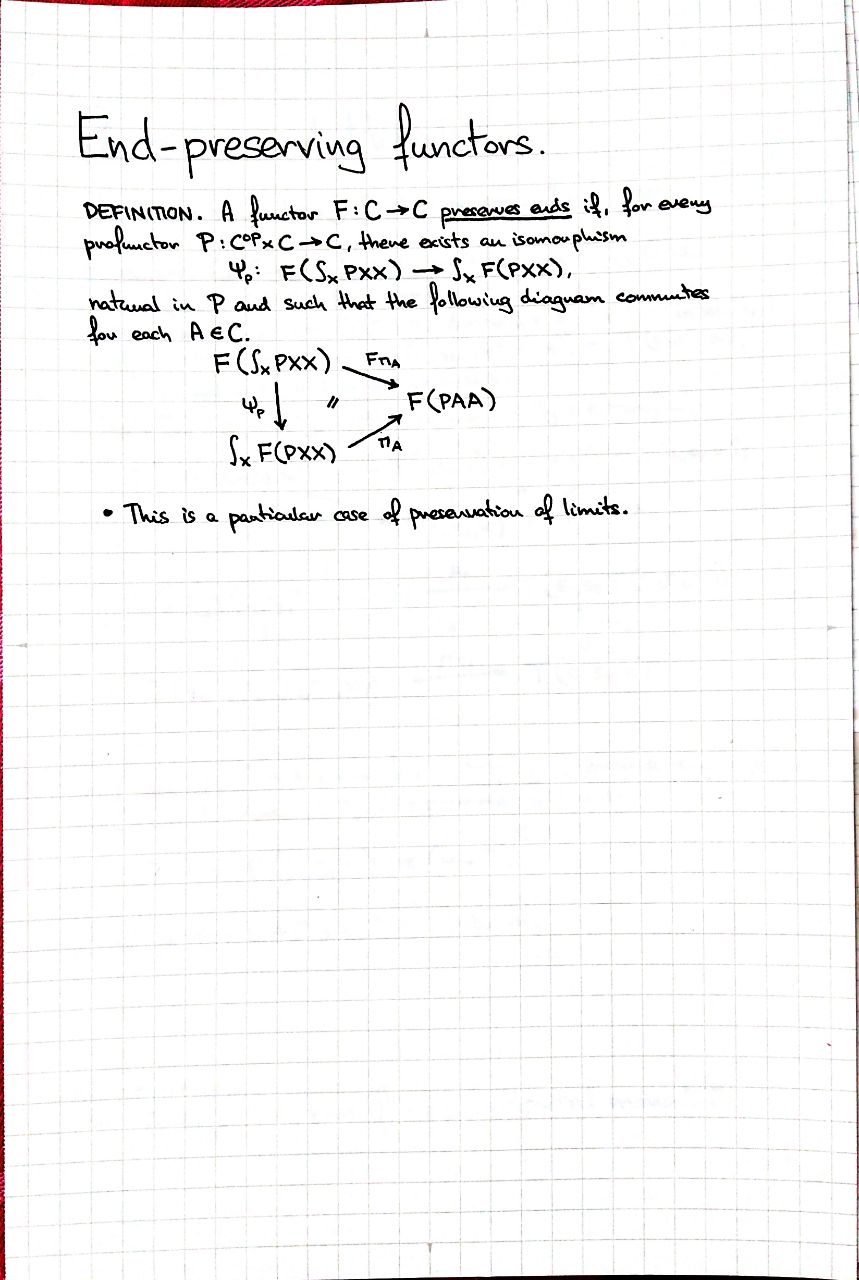 End-preserving functors.
DEFINITION. A functor F : C → C preserves ends if, for every
profunctor P : Cᵒᵖ × C → C, there exists an isomorphism
Ψₚ : F(∫ₓ PXX) → ∫ₓ F(PXX),
natural in P and such that the following diagram commutes
for each A ∈ C.
F(∫ₓ PXX) Fπ_A
Ψₚ ↓ // F(PAA)
∫ₓ F(PXX) π_A
• This is a particular case of preservation of limits.